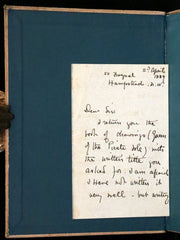 5th April
1889
50 Frognal
Hampstead. N.W.
Dear Sir
I return you the
book of drawings (Queen
of the Pirate Isle) with
the written title you
asked for. I am afraid
I have not written it
very well - but writing